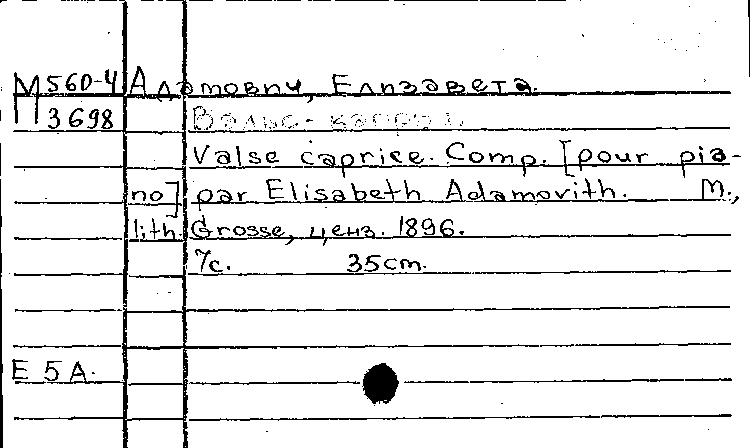 М 560-4 Адамович, Елизавета.
П 3698 Вальс-каприз.
Valse caprice. Comp. [pour pia-
no] par Elisabeth Adamovith. М.,
lith. Grosse, ценз. 1896.
7с. 35cm.
Е 5 А.